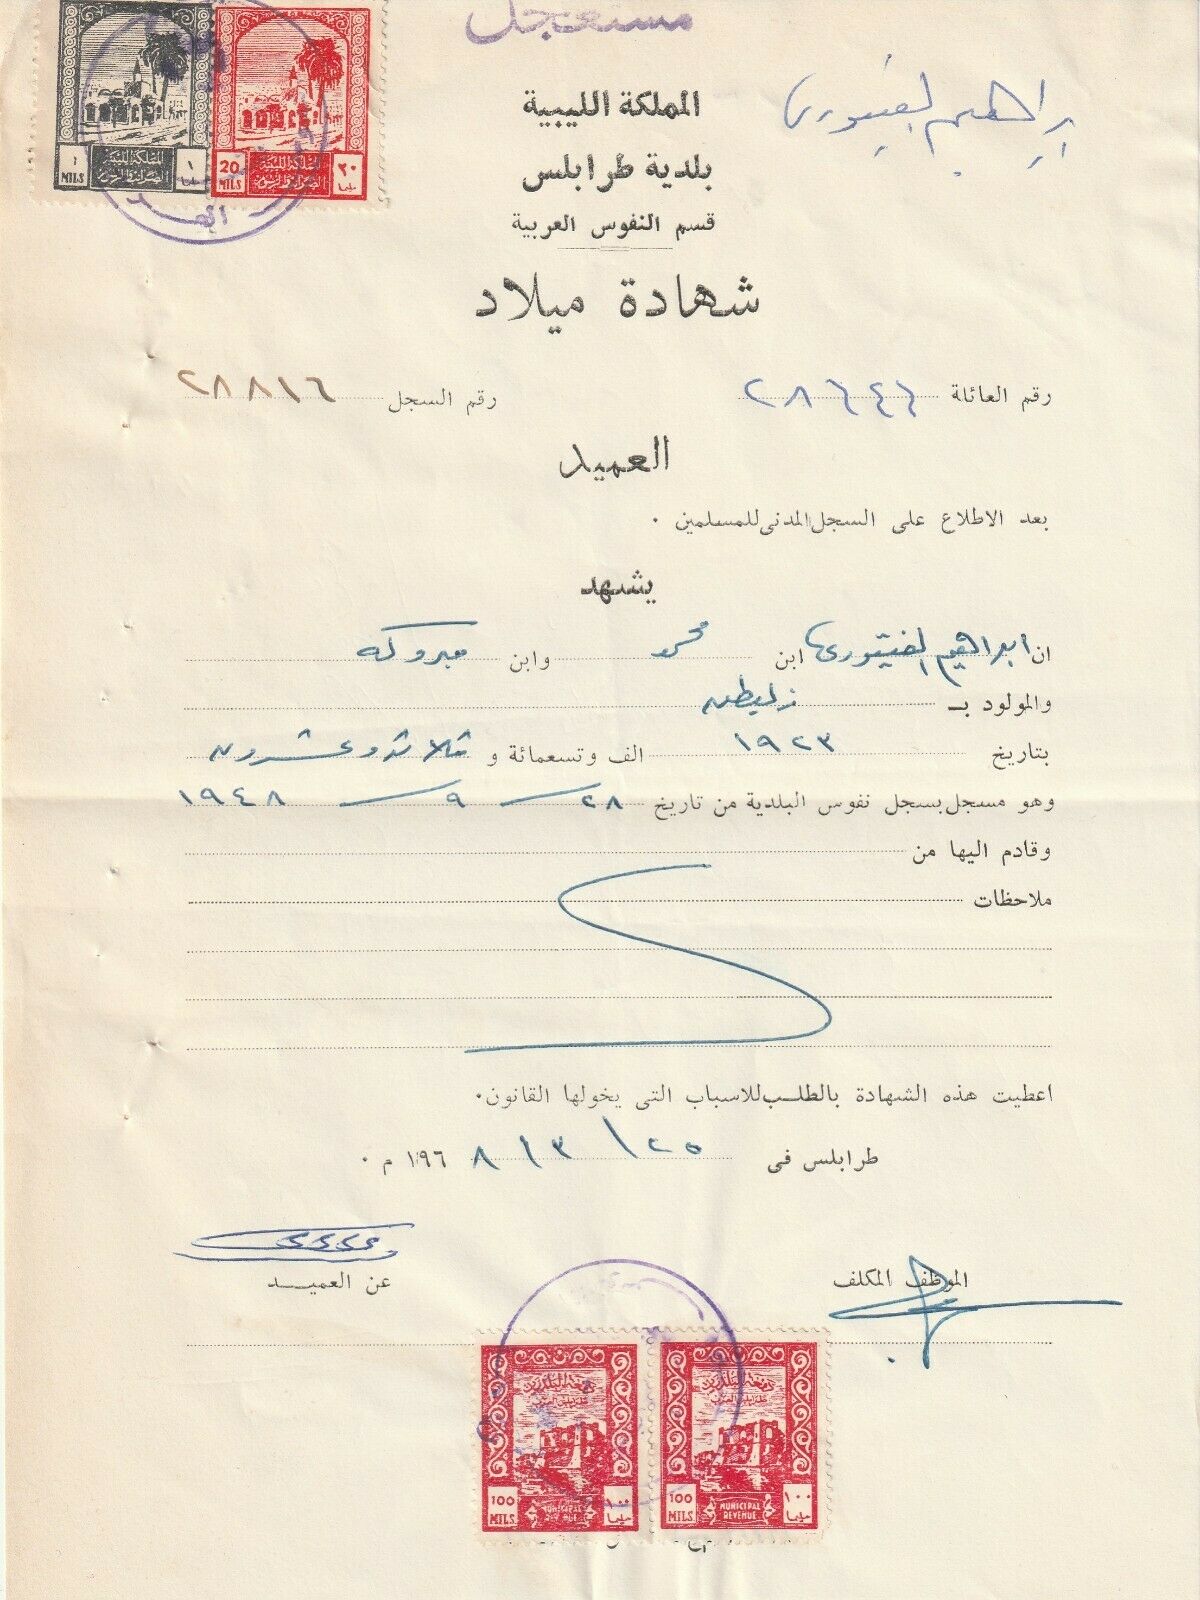 مستعجل
ابراهيم الفيتوري
١ MILS المملكة الليبية ١
20 MILS المملكة الليبية ٢٠ مليما
المملكة الليبية
بلدية طرابلس
قسم النفوس العربية
شهادة ميلاد
رقم العائلة ٢٨٦٤٤ رقم السجل ٢٨٨١٦
العميد
بعد الاطلاع على السجل المدنى للمسلمين .
يشهد
ان ابراهيم الفيتورى ابن محمد وابن مبروكه
والمولود بـ زليطن
بتاريخ ١٩٢٣ الف وتسعمائة و ثلاثة وعشرون
وهو مسجل بسجل نفوس البلدية من تاريخ ٢٨ - ٩ - ١٩٤٨
وقادم اليها من
ملاحظات
اعطيت هذه الشهادة بالطلب للاسباب التى يخولها القانون.
طرابلس فى ٢٥ / ٣ / ١٩٦٨ م .
الموظف المكلف عن العميد
100 MILS MUNICIPAL REVENUE ١٠٠ مليما
100 MILS MUNICIPAL REVENUE ١٠٠ مليما